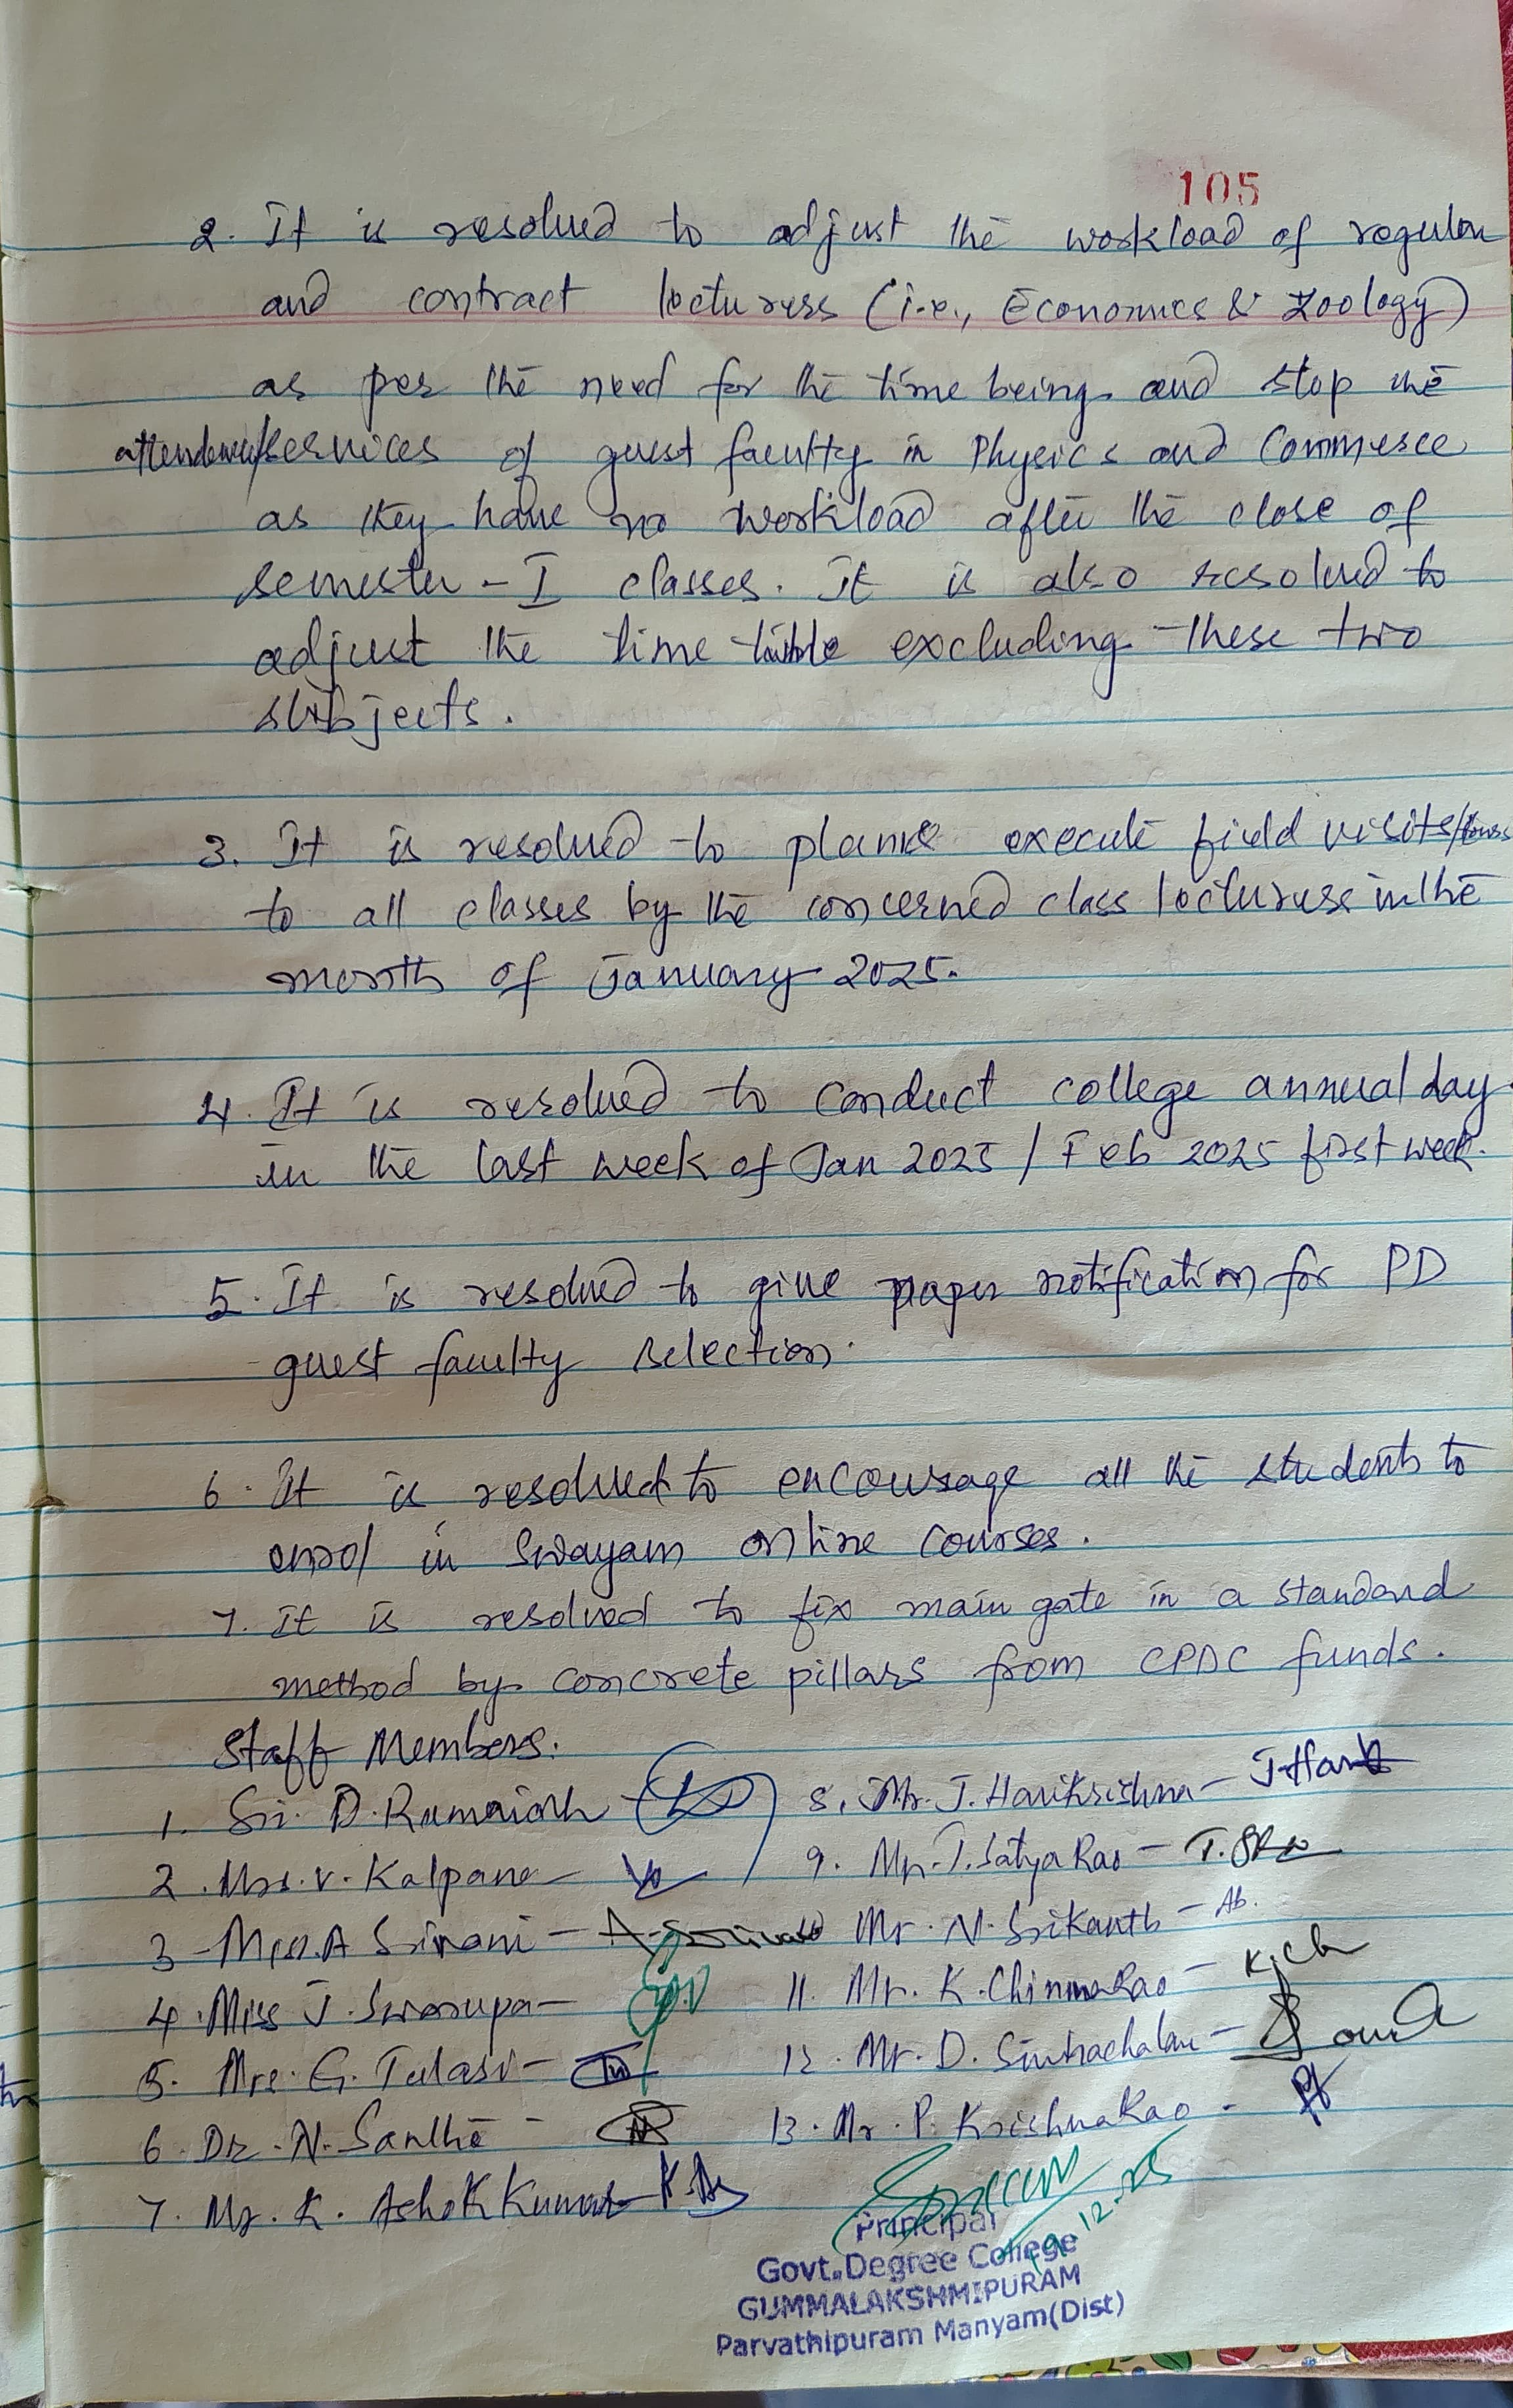 105
2. It is resolved to adjust the workload of regular
and contract lecturess (i.e., Economics & Zoology)
as per the need for the time being and stop the
attendence/services of guest faculty in Physics and Commerce
as they have no workload after the close of
semester - I classes. It is also resolved to
adjust the time table excluding these two
subjects.
3. It is resolved to plan & execute field visits/tours
to all classes by the concerned class lecturers in the
month of January 2025.
4. It is resolved to conduct college annual day
in the last week of Jan 2025 / Feb 2025 first week.
5. It is resolved to give paper notification for PD
guest faculty selection.
6. It is resolved to encourage all the students to
enrol in Swayam online courses.
7. It is resolved to fix main gate in a standard
method by concrete pillars from CPDC funds.
Staff Members:
1. Sri. D. Ramaiah
2. Mrs. V. Kalpana -
3. Miss. A Sirani -
4. Miss J. Swarupa -
5. Mrs. G. Tulasi -
6. Dr. N. Santhi -
7. Mr. K. Ashok Kumar -
8. Mr. J. Harikrishna - J. Hari
9. Mr. T. Satya Rao -
Mr. N. Srikanth - Ab.
11. Mr. K. Chinna Rao - K. Ch
12. Mr. D. Simhachalam -
13. Mr. P. Krishna Rao -
Principal
Govt. Degree College
GUMMALAKSHMIPURAM
Parvathipuram Manyam (Dist)